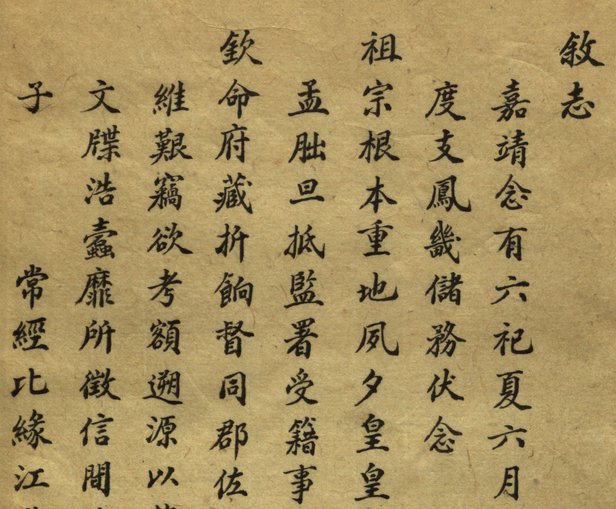 敘志
嘉靖念有六祀夏六月
度支鳳畿儲務伏念
祖宗根本重地夙夕皇皇
孟朏旦抵監署受籍事
欽命府藏折餉督同郡佐
維艱竊欲考額遡源以
文牒浩蠹靡所徵信間
子 常經比緣江